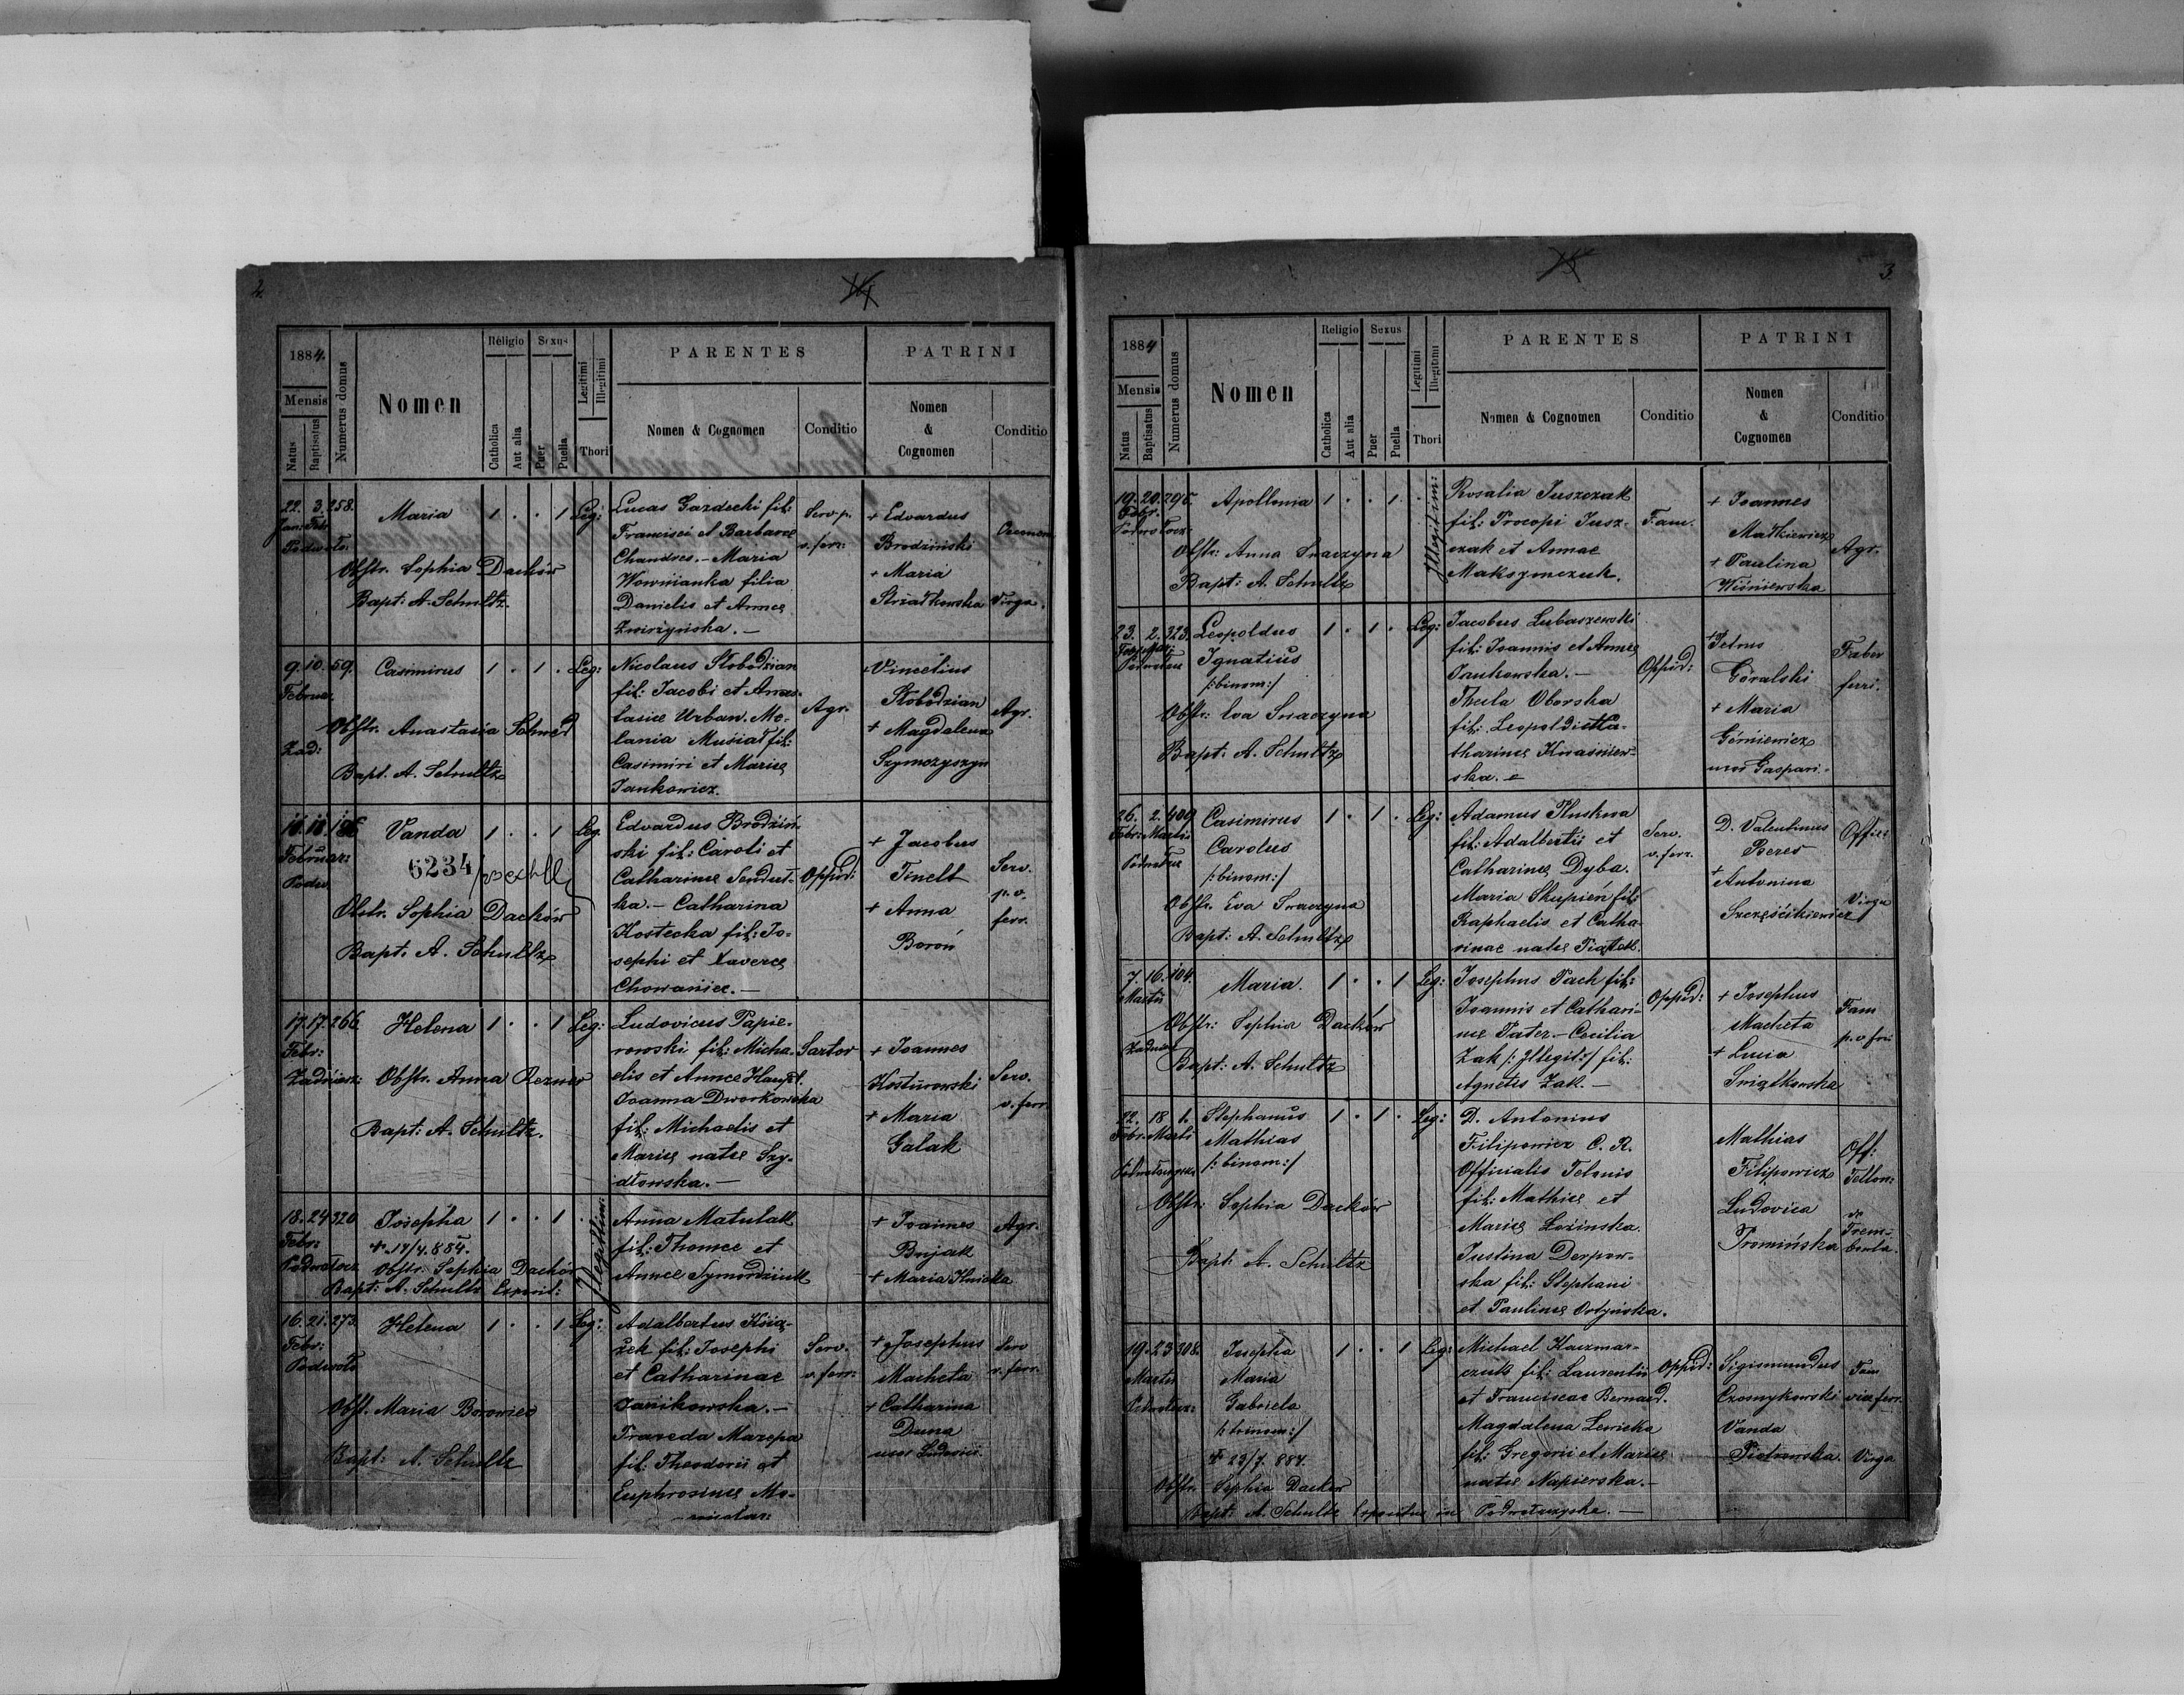 2.
14
1884.
Mensis
Natus
Baptisatus
Numerus domus
Nomen
Religio
Catholica
Aut alia
Sexus
Puer
Puella
Legitimi
Illegitimi
Thori
PARENTES
Nomen & Cognomen
Conditio
PATRINI
Nomen
&
Cognomen
Conditio
22. 3. 258.
Jan: Febr.
Podwoło:
Maria 1 . . 1 Leg:
Obstr. Sophia Dacków
Bapt: A. Schultz.
Lucas Gazdecki fil:
Francisci et Barbarae
Chandres. - Maria
Wownianka filia
Danielis et Annae
Zwirzyńska. -
Serv. p.
v. ferr:
+ Edvardus
Brodziński
+ Maria
Strzałkowska
Virgo.
9. 10. 59.
Februar.
Zad:
Casimirus 1 . 1 . Leg:
Obstr. Anastasia Schmed
Bapt. A. Schultz
Nicolaus Słobodzian
fil: Jacobi et Anas-
tasiae Urban. Me-
lania Musiał fil:
Casimiri et Mariae
Jankowicz.
Agr.
+ Vincetius
Słobodzian
+ Magdalena
Szymczyszyn
Agr.
Februar:
Podw.
Vanda 1 . . 1 Leg.
6234
Obstr. Sophia Dacków
Bapt. A. Schultz
Edvardus Brodziń-
ski fil: Caroli et
Catharinae Senduł-
ka. - Catharina
Kostecka fil: Jo-
sephi et Xaverae
Chowaniec. -
Oppid:
+ Jacobus
Tenelt
+ Anna
Boroń
Serv.
p. v.
ferr.
17. 17. 266.
Febr:
Helena 1 . . 1 Leg:
Obstr. Anna Rezner
Bapt: A. Schultz.
Ludovicus Papie-
rowski fil: Micha-
elis et Annae Haupt.
Joanna Dworkowska
fil: Michaelis et
Mariae natae Szy-
dłowska. -
Sartor
+ Joannes
Kosturowski
+ Maria
Galak
Serv.
v. ferr.
18. 24. 320
Febr:
Podwołocz.
Josepha 1 . . 1 .
Illegitim:
+ 17/4. 884.
Obstr. Sophia Dacków
Bapt: A. Schultz Exposit:
Anna Matulak
fil: Thomae et
Annae Symordziuk
+ Joannes
Bujak
+ Maria Ilnicka
Agr.
16. 21. 273.
Febr:
Podwoło
Helena 1 . . 1 Leg:
Obst. Maria Borowiec
Bapt: A. Schultz
Adalbertus Ksią-
żek fil: Josephi
et Catharinae
Janikowska. -
Praxeda Mazepa
fil: Theodorii et
Euphrosinae
Serv.
v. ferr:
+ Josephus
Macheta
+ Catharina
Duma
uxor Ludovici
Serv
v. ferr.
15
3.
1884
Mensis
Natus
Baptisatus
Numerus domus
Nomen
Religio
Catholica
Aut alia
Sexus
Puer
Puella
Legitimi
Illegitimi
Thori
PARENTES
Nomen & Cognomen
Conditio
PATRINI
Nomen
&
Cognomen
Conditio
19. 20. 295.
Febr.
Podwołocz:
Apollonia 1 . . 1 .
Illegitim:
Obstr: Anna Snaczyna
Bapt: A. Schultz
Rosalia Juszczak
fil: Procopi Jusz-
czak et Annae
Maksymczuk.
Fam.
+ Joannes
Małkiewicz
+ Paulina
Wiśniewska
Agr.
23. 2. 323.
Leopoldus 1 . 1 . Leg:
Ignatius
/:binom:/
Obstr: Eva Snaczyna
Bapt: A. Schultz
Jacobus Lubaszewski
fil: Joannis et Annae
Jankowska. -
Thecla Oborska
fil: Leopoldi et Ca-
tharinae Kwaśniew-
ska. -
Oppid:
+ Petrus
Góralski
+ Maria
Górniewicz
uxor Gaspari.
Faber
ferri.
26. 2. 409
Febr. Martii
Casimirus 1 . 1 . Leg:
Carolus
/:binom:/
Obstr. Eva Snaczyna
Bapt: A. Schultz
Adamus Pluskwa
fil: Adalbertii et
Catharinae Dyba.
Maria Skupień fil:
Raphaelis et Catha-
rinae natae Piątek.
Serv.
v. ferr.
D. Valentinus
Beres
+
Antonina
Szczęścikiewicz
Offic:
Virgo
7. 16. 104.
Martii
Maria. 1 . . 1 Leg:
Obstr: Sophia Dacków
Bapt: A. Schultz
Josephus Pach fil:
Joannis et Cathari-
nae Pater. - Cecilia
Żak /: Illegit:/ fil:
Agnetis Żak. -
Oppid:
+ Josephus
Macheta
+ Lucia
Świątkowska
Fam
22. 18 1.
Febr. Marti
Stephanus 1 . 1 . Leg:
Mathias
/:binom:/
Obstr: Sophia Dacków
Bapt: A. Schultz
D. Antonius
Filipowicz C. R.
Officialis Telonis
fil: Mathiae et
Mariae Łozinska.
Justina Derpow-
ska fil: Stephani
et Paulinae Ostyńska.
Mathias
Filipowicz
Ludovica
Promińska
Off:
Tellon:
de
Trem-
bowla.
19. 23 308.
Martii
Josepha 1 . . 1 Leg:
Maria
Gabriela
/:trinom:/
+ 23/7. 884.
Obstr. Sophia Dacków
Bapt: A. Schultz Expositus in Podwołoczyska. -
Michael Kaczmar-
czuk fil: Laurentii
et Franciscae Bernard.
Magdalena Lewicka
fil: Gregorii et Mariae
natae Napierska. -
Oppid:
Sigismundus
Czomykowski
Vanda
Piotrowska.
Fam
viae ferr.
Virgo